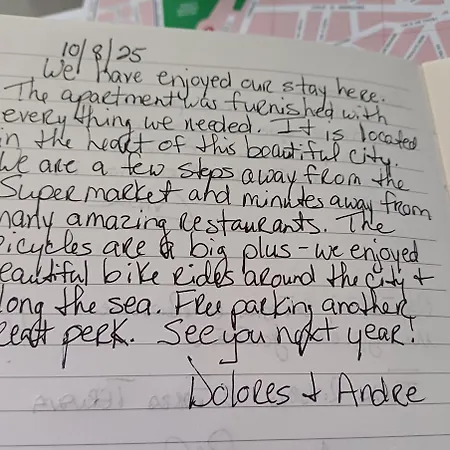 10/8/25
We have enjoyed our stay here.
The apartment was furnished with
everything we needed. It is located
in the heart of this beautiful city.
We are a few steps away from the
Supermarket and minutes away from
many amazing restaurants. The
bicycles are a big plus - we enjoyed
beautiful bike rides around the city +
along the sea. Free parking another
great perk. See you next year!
Dolores + Andre